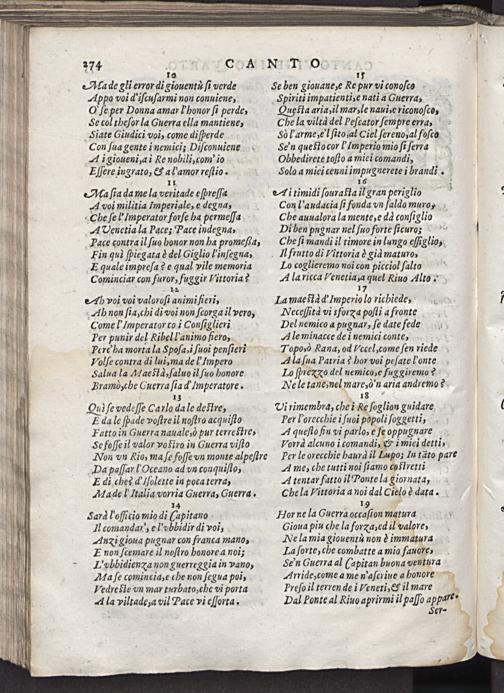 274
CANTO
10
Ma de gli error di giouentù sì verde
Appo voi d'iscusarmi non conuiene,
O se per Donna amar l'honor si perde,
Se col thesor la Guerra ella mantiene,
Siate Giudici voi, come disperde
Con sua gente i nemici; Disconuiene
A i gioueni, a i Re nobili, com'io
Essere ingrato, & a l'amor restio.
11
Ma sia da me la veritade espressa
A voi militia Imperiale, e degna,
Che se l'Imperator forse ha permessa
A Venetia la Pace; Pace indegna,
Pace contra il suo honor non ha promessa,
Fin quì spiegata è del Giglio l'insegna,
E quale impresa? e qual vile memoria
Cominciar con furor, fuggir Vittoria?
12
Ah voi voi valorosi animi fieri,
Ah non sia, chi di voi non scorga il vero,
Come l'Imperator co i Consiglieri
Per punir del Ribel l'animo fiero,
Perc'ha morta la Sposa, i suoi pensieri
Volse contra di lui, ma de l'Impero
Salua la Maestà, saluo il suo honore
Bramò, che Guerra sia d'Imperatore.
13
Quì se vedesse Carlo da le destre,
E da le spade vostre il nostro acquisto
Fatto in Guerra nauale, ò pur terrestre,
Se fosse il valor vostro in Guerra visto
Non vn Rio, ma se fosse vn monte alpestre
Da passar l'Oceano ad vn conquisto,
E di, che? d'Isolette in poca terra,
Ma de l'Italia vorria Guerra, Guerra.
14
Sarà l'officio mio di Capitano
Il comandar', e l'vbbidir di voi,
Anzi gioua pugnar con franca mano,
E non scemare il nostro honore a noi;
L'vbbidienza non guerreggia in vano,
Ma se comincia, e che non segua poi,
Vedreste vn mar turbato, che vi porta
A la viltade, a vil Pace vi essorta.
15
Se ben giouane, e Re pur vi conosco
Spiriti impatienti, e nati a Guerra,
Questa aria, il mar, le naui, e riconosco,
Che la viltà del Pescator sempre erra,
Sò l'arme, e'l sito, al Ciel sereno, al fosco
Se'n questo cor l'Imperio mio si serra
Obbedirete tosto a miei comandi,
Solo a miei cenni impugnerete i brandi.
16
A i timidi sourasta il gran periglio
Con l'audacia si fonda vn saldo muro,
Che auualora la mente, e dà consiglio
Di ben pugnar nel suo forte sicuro;
Che si mandi il timore in lungo essiglio,
Il frutto di Vittoria è già maturo,
Lo coglieremo noi con picciol salto
A la ricca Venetia, a quel Riuo Alto.
17
La maestà d'Imperio lo richiede,
Necessità vi sforza posti a fronte
Del nemico a pugnar, se date fede
A le minacce de i nemici conte,
Topo, ò Rana, od Vccel, come sen riede
A la sua Patria? hor voi pesate l'onte
Lo sprezzo del nemico, e fuggiremo?
Ne le tane, nel mare, ò'n aria andremo?
18
Vi rimembra, che i Re soglion guidare
Per l'orecchie i suoi popoli soggetti,
A questo fin vi parlo, e se oppugnare
Vorrà alcuno i comandi, & i miei detti,
Per le orecchie haurà il Lupo; In tāto pare
A me, che tutti noi siamo costretti
A tentar fatto il Ponte la giornata,
Che la Vittoria a noi dal Cielo è data.
19
Hor ne la Guerra occasion matura
Gioua piu che la forza, ed il valore,
Ne la mia giouentù non è immatura
La sorte, che combatte a mio fauore,
Se'n Guerra al Capitan buona ventura
Arride, come a me n'ascriue a honore
Preso il terren de i Veneti, & il mare
Dal Ponte al Riuo aprirmi il passo appare.
Ser-